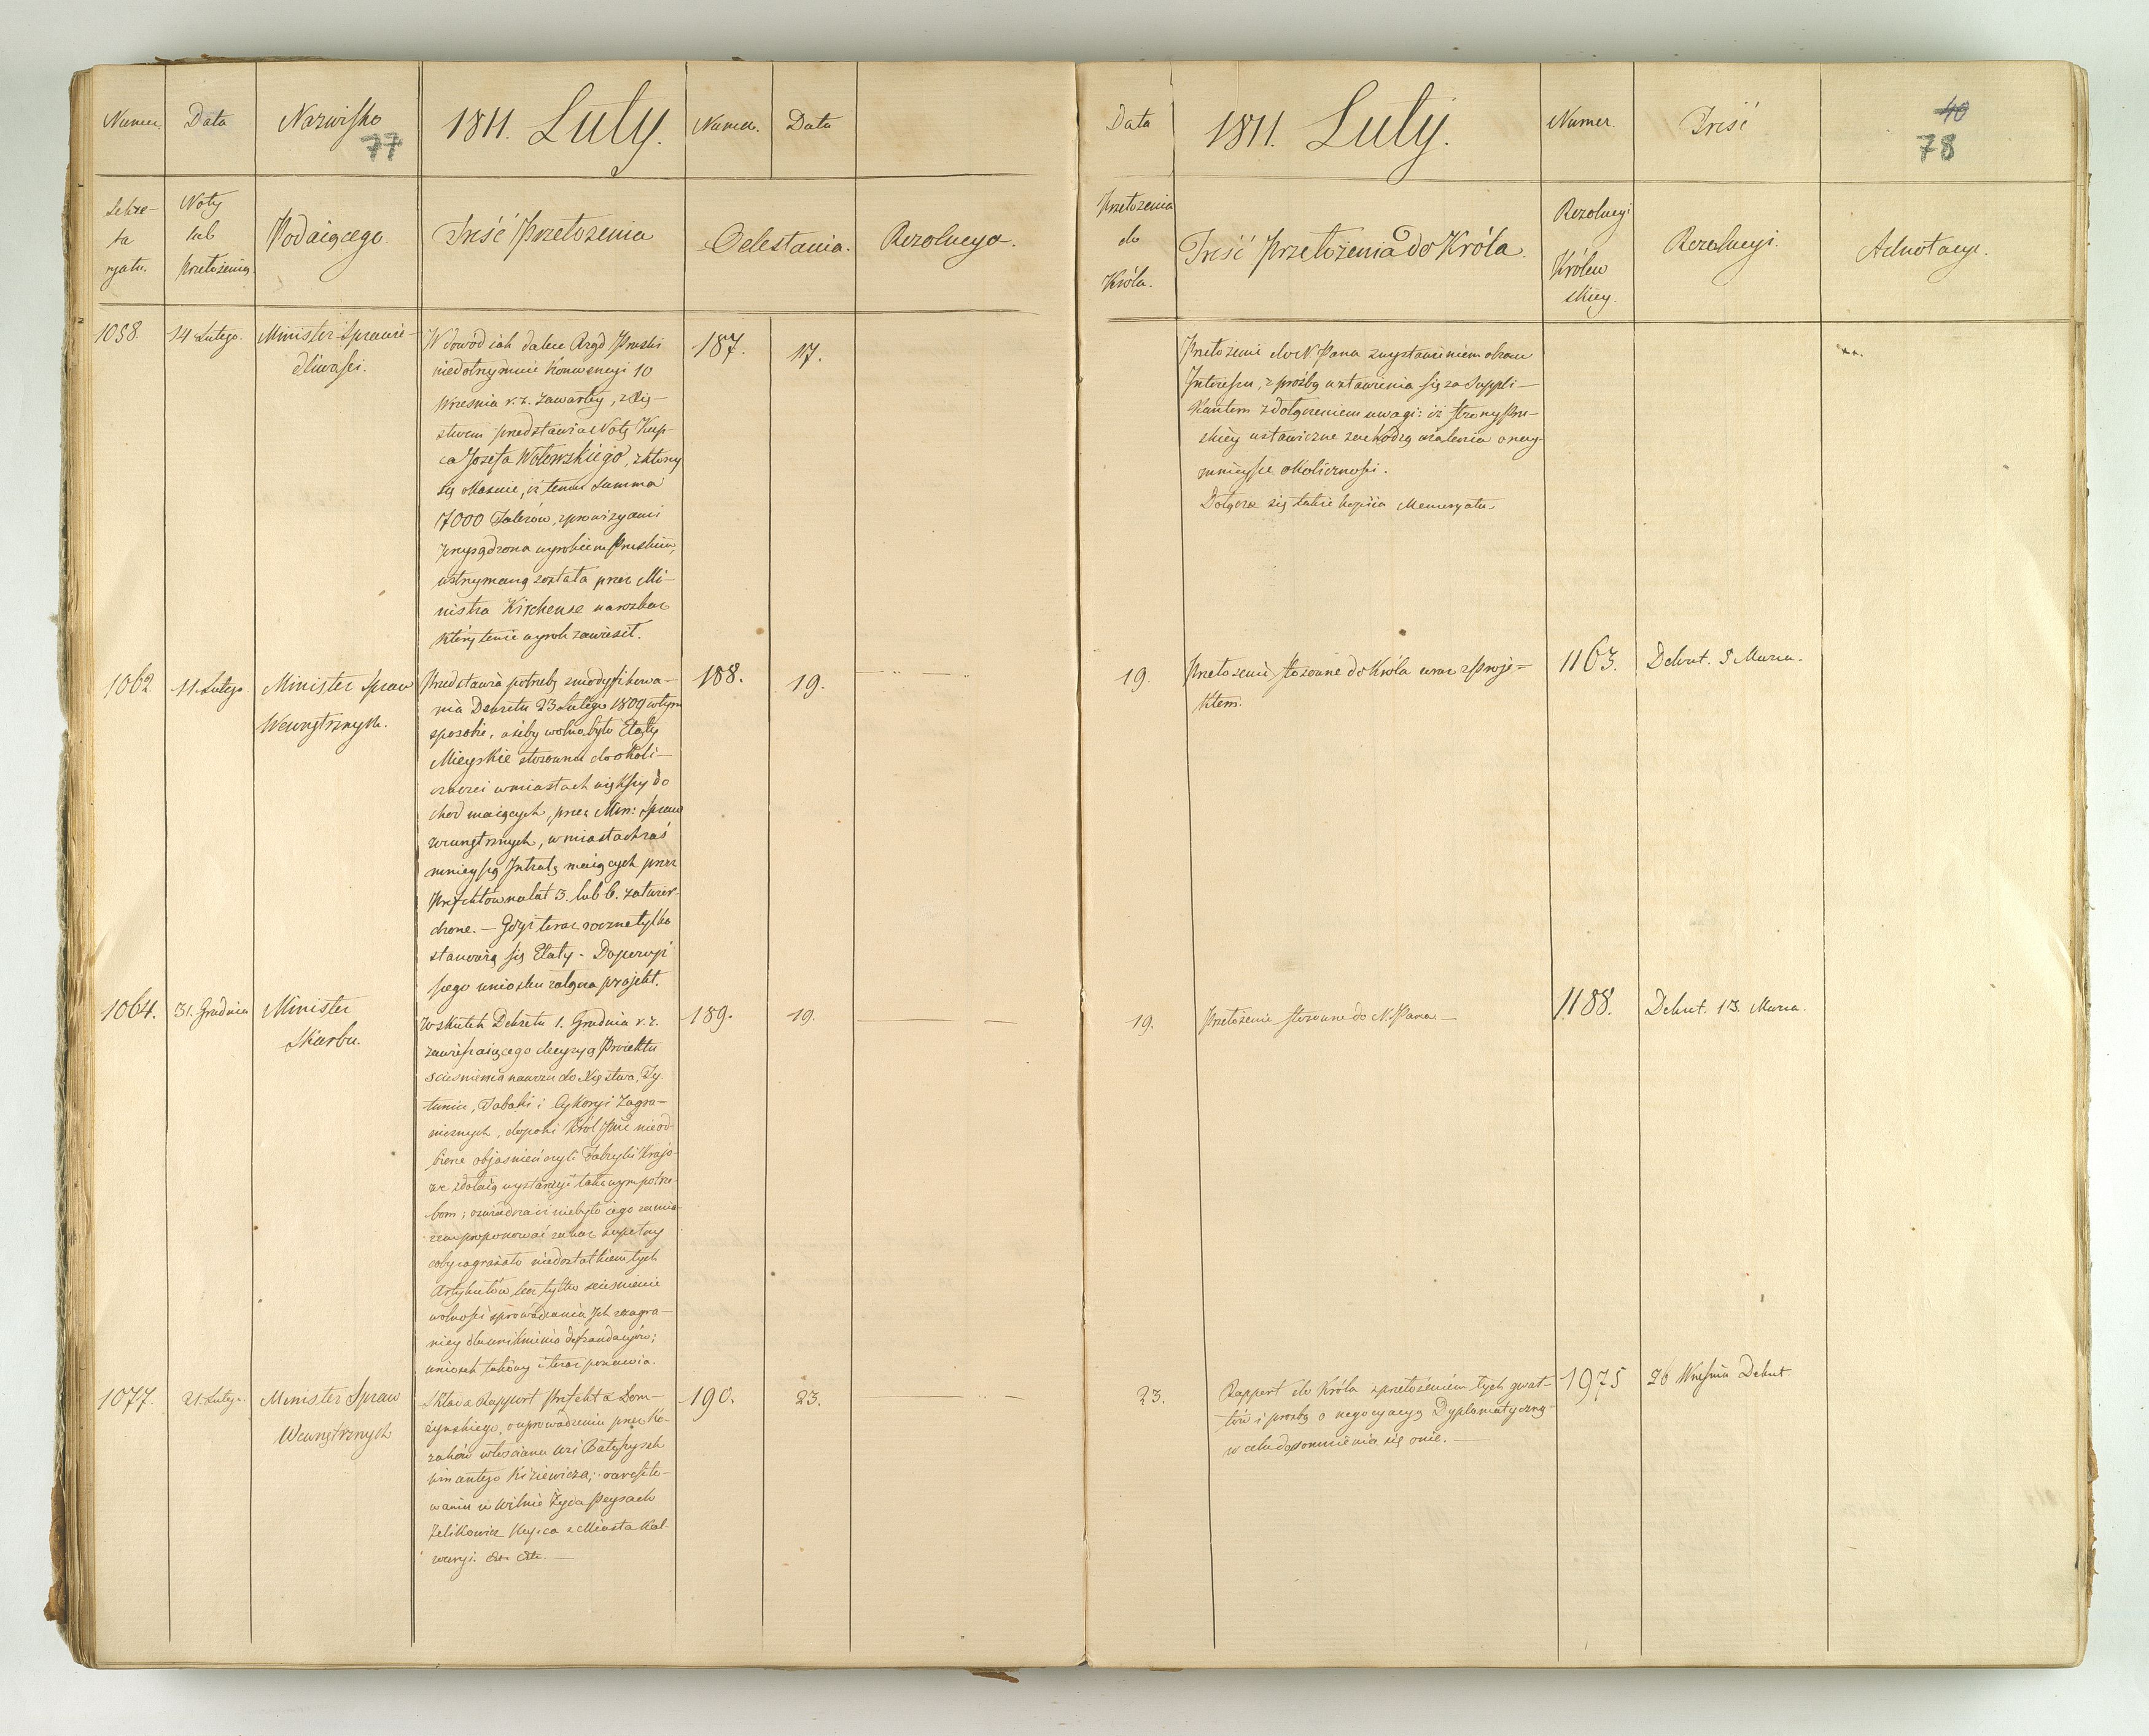 Numer.
Data
Nazwisko
77
1811. Luty.
Numer.
Data
Sekre-
ta
ryatu.
Noty
lub
Przełożenia
Podaiącego.
Treść Przełożenia
Odesłania.
Rezolucya.
1058.
14 Lutego.
Minister Sprawie-
dliwości.
187.
17.
W dowod iak dalece Rząd Pruski
niedotrzymuie Konwencyi 10
Września r. z. zawartey, z Xię-
stwem przedstawia Notę Kup-
ca Jozefa Wołowskiego, z ktorey
się okazuie, iż temu Summa
17000 Talerów, z prowizyami
przysądzona wyrokiem Pruskim,
wstrzymaną została przez Mi-
nistra Kircheise na rozkaz
który tenże wyrok zawiesił.
1062.
11 Lutego
Minister Spraw
Wewnętrznych.
188.
19.
Przedstawia potrzebę zmodyfikowa-
nia Dekretu 23 Lutego 1809 w tym
sposobie, ażeby wolno było Etaty
Mieyskie stosownie do okoli-
czności w miastach większy do
chod maiących, przez Min: Spraw
wewnętrznych, w miastach zaś
mnieyszą Intratę maiących przez
Prefektów na lat 3. lub 6. zatwier-
dzone. — Gdyż teraz roczne tylko
stanowią się Etaty - Do powyż
szego wniosku załącza projekt.
1064.
31. Grudnia
Minister
Skarbu.
189.
19.
W skutek Dekretu 1. Grudnia r. z.
zawieszaiącego decyzyą Proiektu
scieśnienia nawozu do Xięstwa, Ty
tuniu, Tabaki i Cykoryi Zagra-
nicznych, dopoki Król Jmć nieod-
bierze objaśnień czyli Fabryki Krajo-
we zdołaią wystarczyć takowym potrze-
bom; oświadcza iż niebyło iego zamia-
rem proponować zakaz zupełny
coby zagrażało niedostatkiem tych
Artykułów lecz tylko scieśnienie
wolności sprowadzania Ich z zagra-
nicy dla uniknienia defraudacyów;
wniosek takowy i teraz ponawia.
1077.
21. Luty.
Minister Spraw
Wewnętrznych
190.
23.
Składa Rapport Prefekta Łom-
żynskiego, o uprowadzeniu przez Ko-
zaków włościana wsi
Kiziewicza; o areszto-
waniu w Wilnie Żyda Peysach
Zelikowicz Kupca z Miasta Kal-
waryi. etc. etc. —
Data
1811. Luty.
Numer.
Treść
40
78
Przełożenia
do
Króla.
Treść Przełożenia do Króla.
Rezolucyi
Królew
skiey.
Rezolucyi.
Adnotacye.
Przełożenie do N. Pana z wystawieniem obrazu
Interessu, z prośbą wstawienia się za Suppli-
kantem z dołączeniem uwagi: iż strony Pru-
skiey ustawiczne zachodzą użalenia o nay-
mnieysze okoliczności.
Dołącza się także kopiia Memoryału
19.
Przełożenie stosowne do Króla wraz z Proje-
ktem.
1163.
Dekret. 5 Marca.
19.
Przełożenie stosowne do N. Pana —
1188.
Dekret. 13. Marca.
23.
Rappert do Króla z przełożeniem tych gwał-
tów i prozbą o negocyacyą Dyplomatyczną
w celu dopomnienia się onie. —
1975
26 Wrzesnia Dekret.